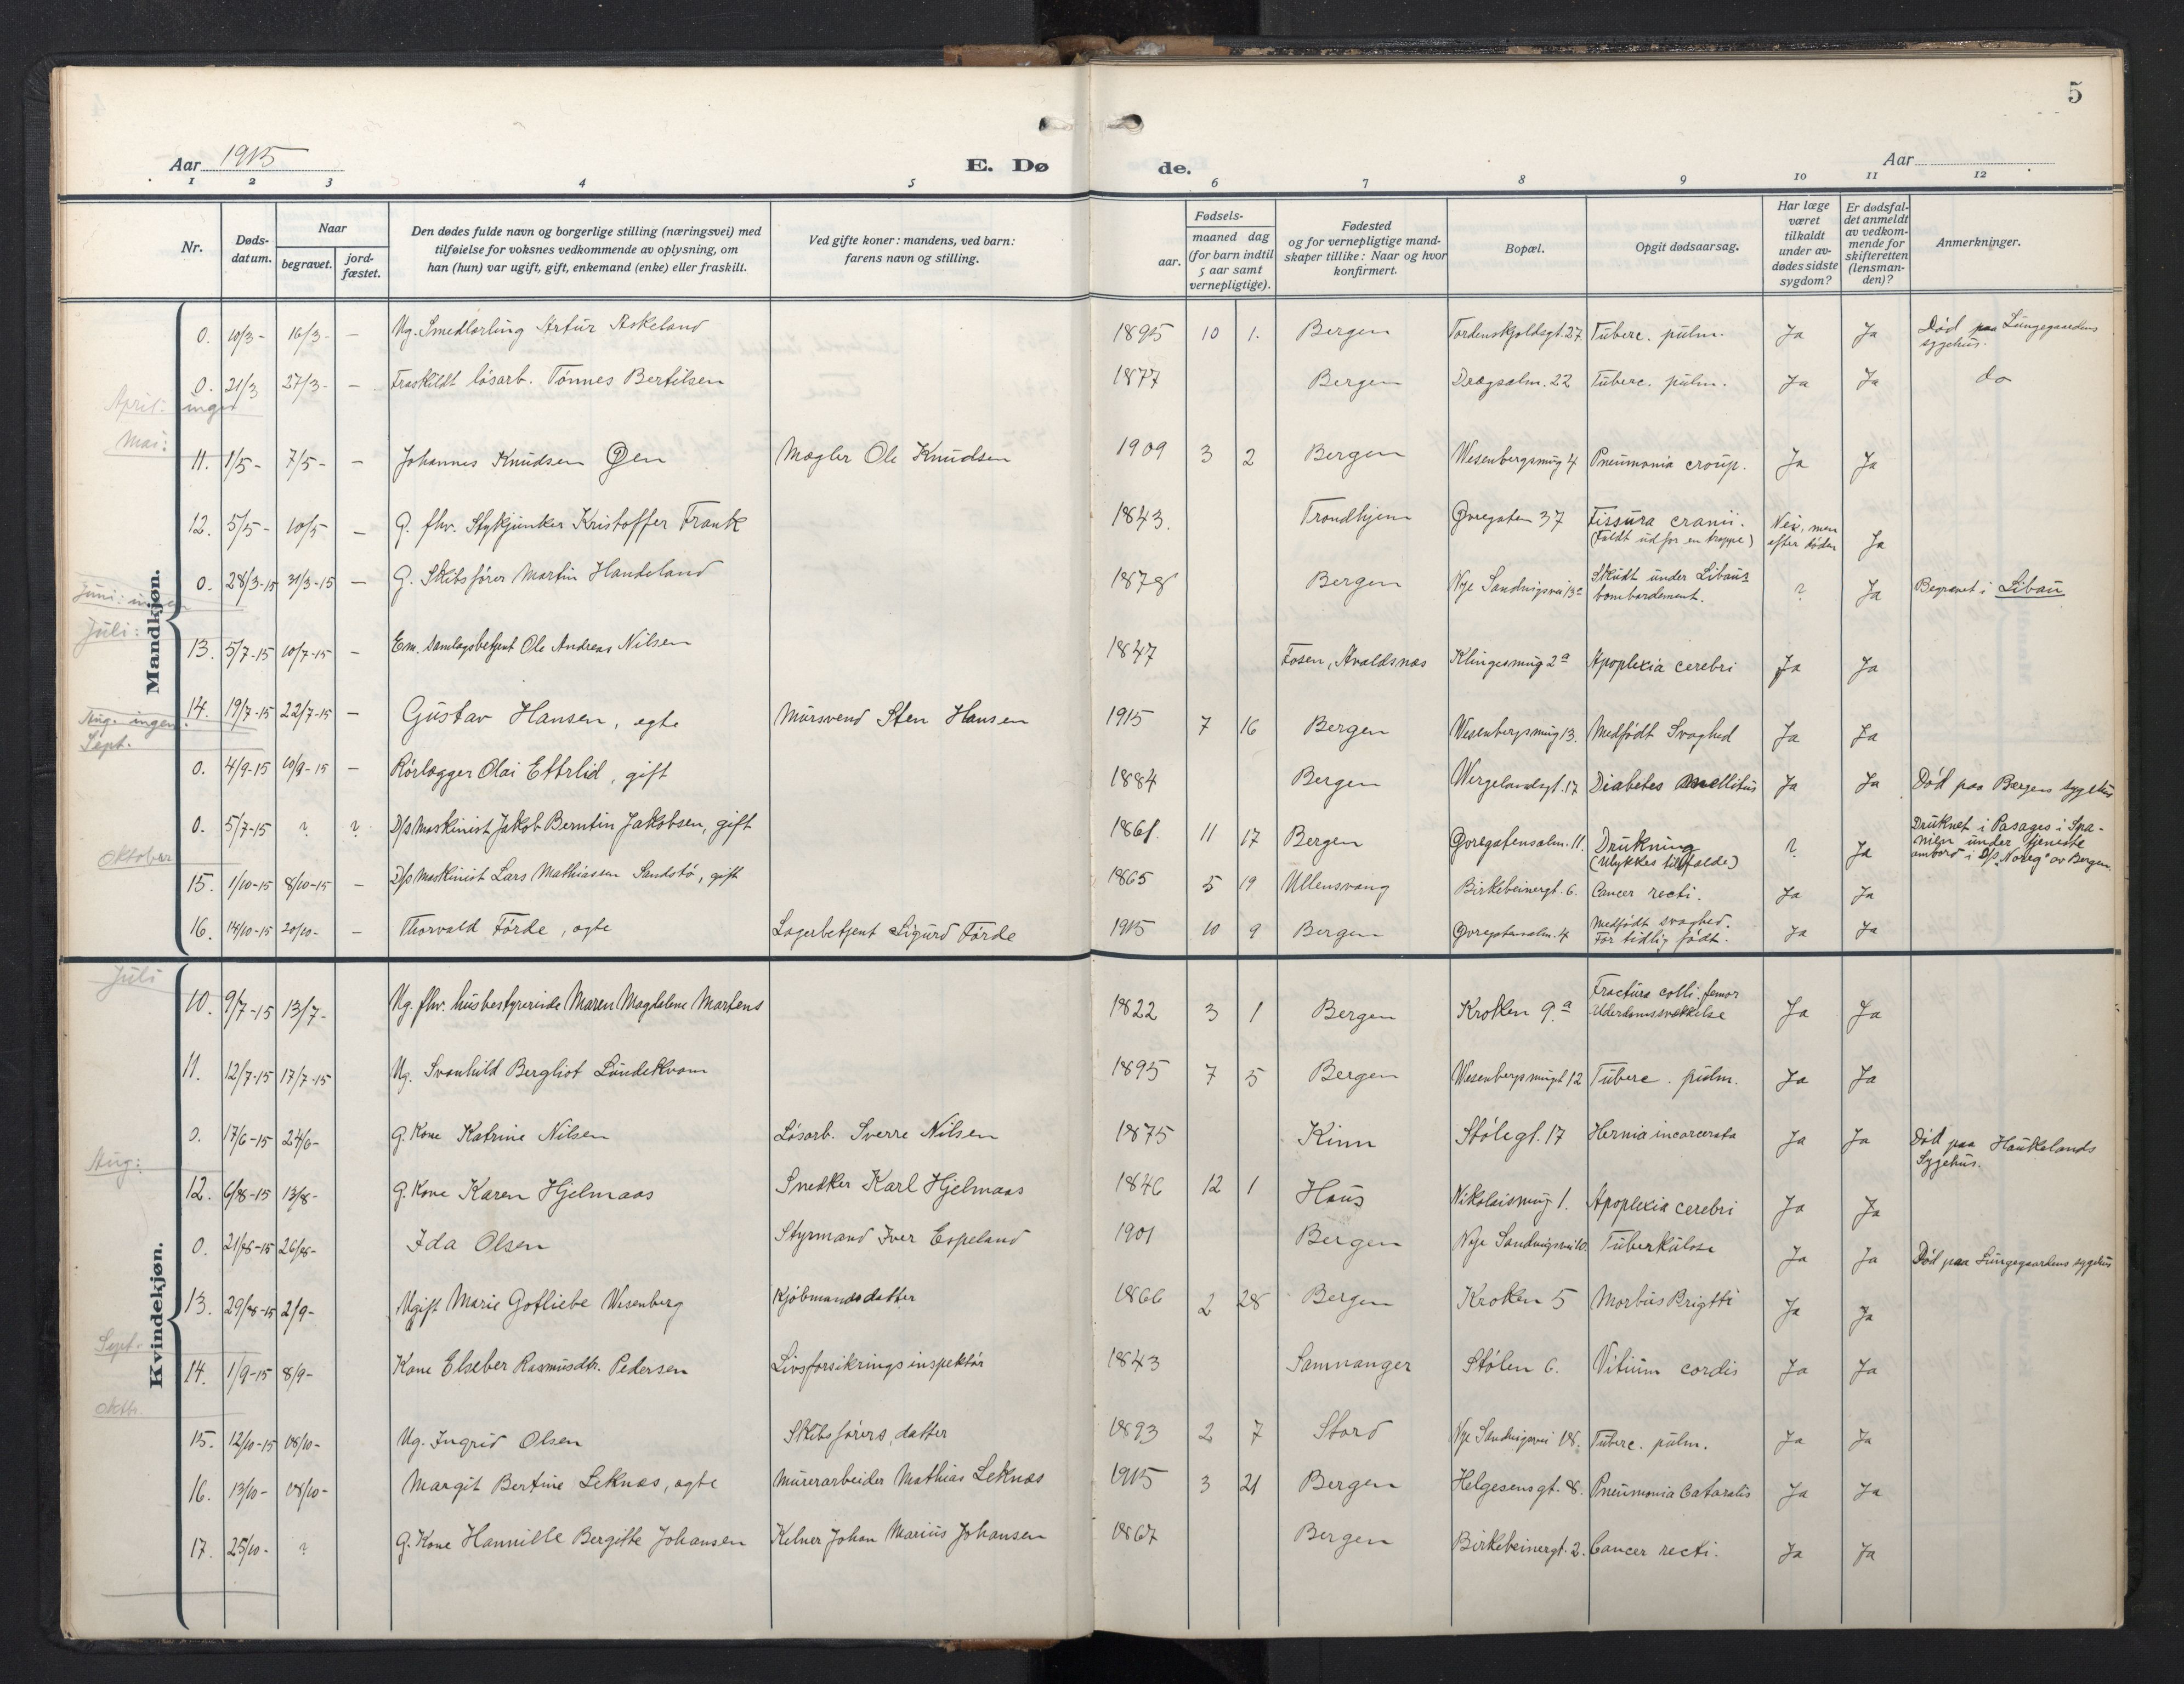 5
Aar 1915 E. Dø de. Aar
1 2 3 4 5 6 7 8 9 10 11 12
Nr. Døds-datum. Naar begravet. jord-fæstet. Den dødes fulde navn og borgerlige stilling (næringsvei) med tilføielse for voksnes vedkommende av oplysning, om han (hun) var ugift, gift, enkemand (enke) eller fraskilt. Ved gifte koner: mandens, ved barn: farens navn og stilling. Fødsels- aar. maaned dag (for barn indtil 5 aar samt vernepligtige). Fødested og for vernepligtige mand-skaper tillike: Naar og hvor konfirmert. Bopæl. Opgit dødsaarsag. Har læge været tilkaldt under av-dødes sidste sygdom? Er dødsfal-det anmeldt av vedkom-mende for skifteretten (lensman-den)? Anmerkninger.
Mandkjøn.
0. 10/3- 16/3- – Ug. Smedlærling Artur Askeland 1895 10 1. Bergen Tordenskjoldsgt. 27 Tuberc. pulm. Ja Ja Død paa Lungegaardens sygehus.
0. 21/3 27/3- – Fraskildt løsarb. Tønnes Bertilsen 1877 Bergen Dragsalm. 22 Tuberc. pulm. Ja Ja do
April: ingen
Mai:
11. 1/5- 7/5- – Johannes Knudsen Øen Mægler Ole Knudsen 1909 3 2 Bergen Wesenbergsmug 4 Pneumonia croup. Ja Ja
12. 5/5- 10/5 – G. fhv. Stykjunker Kristoffer Frank 1843. Trondhjem Øvregaten 37 Fissura cranii. (Faldt ud for en trappe) Nei, men efter døden Ja
0. 28/3-15 31/3-15 – G. Skibsfører Martin Handeland 1878 Bergen Nye Sandvigsvei 13a Skudt under Libaus bombardement. ? Ja Begravet i Libau
Juni: ingen
Juli:
13. 5/7-15 10/7-15 – Em. Samlagsbetjent Ole Andreas Nilsen 1847 Fosen, Avaldsnæs Klingesmug 2a Apoplexia cerebri Ja Ja
14. 19/7-15 22/7-15 – Gustav Hansen, egte Mursvend Sten Hansen 1915 7 16 Bergen Wesenbergsmug 13. Medfødt Svaghed Ja Ja
Aug. ingen.
Sept.
0. 4/9-15 10/9-15 – Rørlægger Olai Ettrlid, gift 1884 Bergen Wergelandsgt. 17 Diabetes mellitus Ja Ja Død paa Bergens sygehus
0. 5/7-15 ? ? D/s Maskinist Jakob Berntin Jakobsen, gift 1861. 11 17 Bergen Øvregatensalm. 11. Drukning (Ulykkestilfælde) ? Ja Druknet i Pasages i Spa-nien under tjeneste ombord i D/s "Noreg" av Bergen.
Oktober
15. 1/10-15 8/10-15 – D/s Maskinist Lars Mathiassen Sandstø, gift 1865 5 19 Ullensvang Birkebeinergt. 6. Cancer recti. Ja Ja
16. 14/10-15 20/10- – Thorvald Førde, egte Lagerbetjent Sigurd Førde 1915 10 9 Bergen Øvregatensalm. 4 Medfødt svaghed. For tidlig født. Ja Ja
Kvindekjøn.
Juli
10. 9/7-15 13/7- Ug. fhv. husbestyrerinde Maren Magdalene Martens 1822 3 1 Bergen Kroken 9a Fractura colli femor Alderdomssvækkelse Ja Ja
11. 12/7-15 17/7-15 Ug. Svanhild Bergliot Lundekvam 1895 7 5 Bergen Wesenbergsmuget 12 Tuberc. pulm. Ja Ja
0. 17/6-15 24/6- G. Kone Katrine Nilsen Løsarb. Sverre Nilsen 1875 Kinn Stølegt. 17 Hernia incarcerata Ja Ja Død paa Haukelands Sygehus.
Aug:
12. 6/8-15 13/8- G. Kone Karen Hjelmaas Snedker Karl Hjelmaas 1846 12 1 Haus Nikolaismug 1. Apoplexia cerebri Ja Ja
0. 21/8-15 26/8- Ida Olsen Styrmand Iver Espeland 1901 Bergen Nye Sandvigsvei Tuberkulose Ja Ja Død paa Lungegaardens sygehus
13. 29/8-15 2/9- Ugift Marie Gotliebe Wesenberg Kjøbmandsdatter 1866 2 28 Bergen Kroken 5 Morbus Brigtti Ja Ja
Sept.
14. 1/9-15 8/9- Kone Elseber Rasmusdtr. Pedersen Livsforsikringsinspektør 1843 Samnanger Stølen 6. Vitium cordis Ja Ja
Oktbr.
15. 12/10-15 18/10- Ug. Ingrid Olsen Skibsførers datter 1893 2 7 Stord Nye Sandvigsvei 18. Tuberc. pulm. Ja Ja
16. 13/10- 18/10- Margit Bertine Leknæs, egte Murerarbeider Mathias Leknæs 1915 3 21 Bergen Helgesensgt. 8. Pneumonia Cataralis Ja Ja
17. 25/10- ? G. Kone Hannille Bergitte Johansen Kelner Johan Marius Johansen 1867 Bergen Birkebeinergt. 2. Cancer recti. Ja Ja